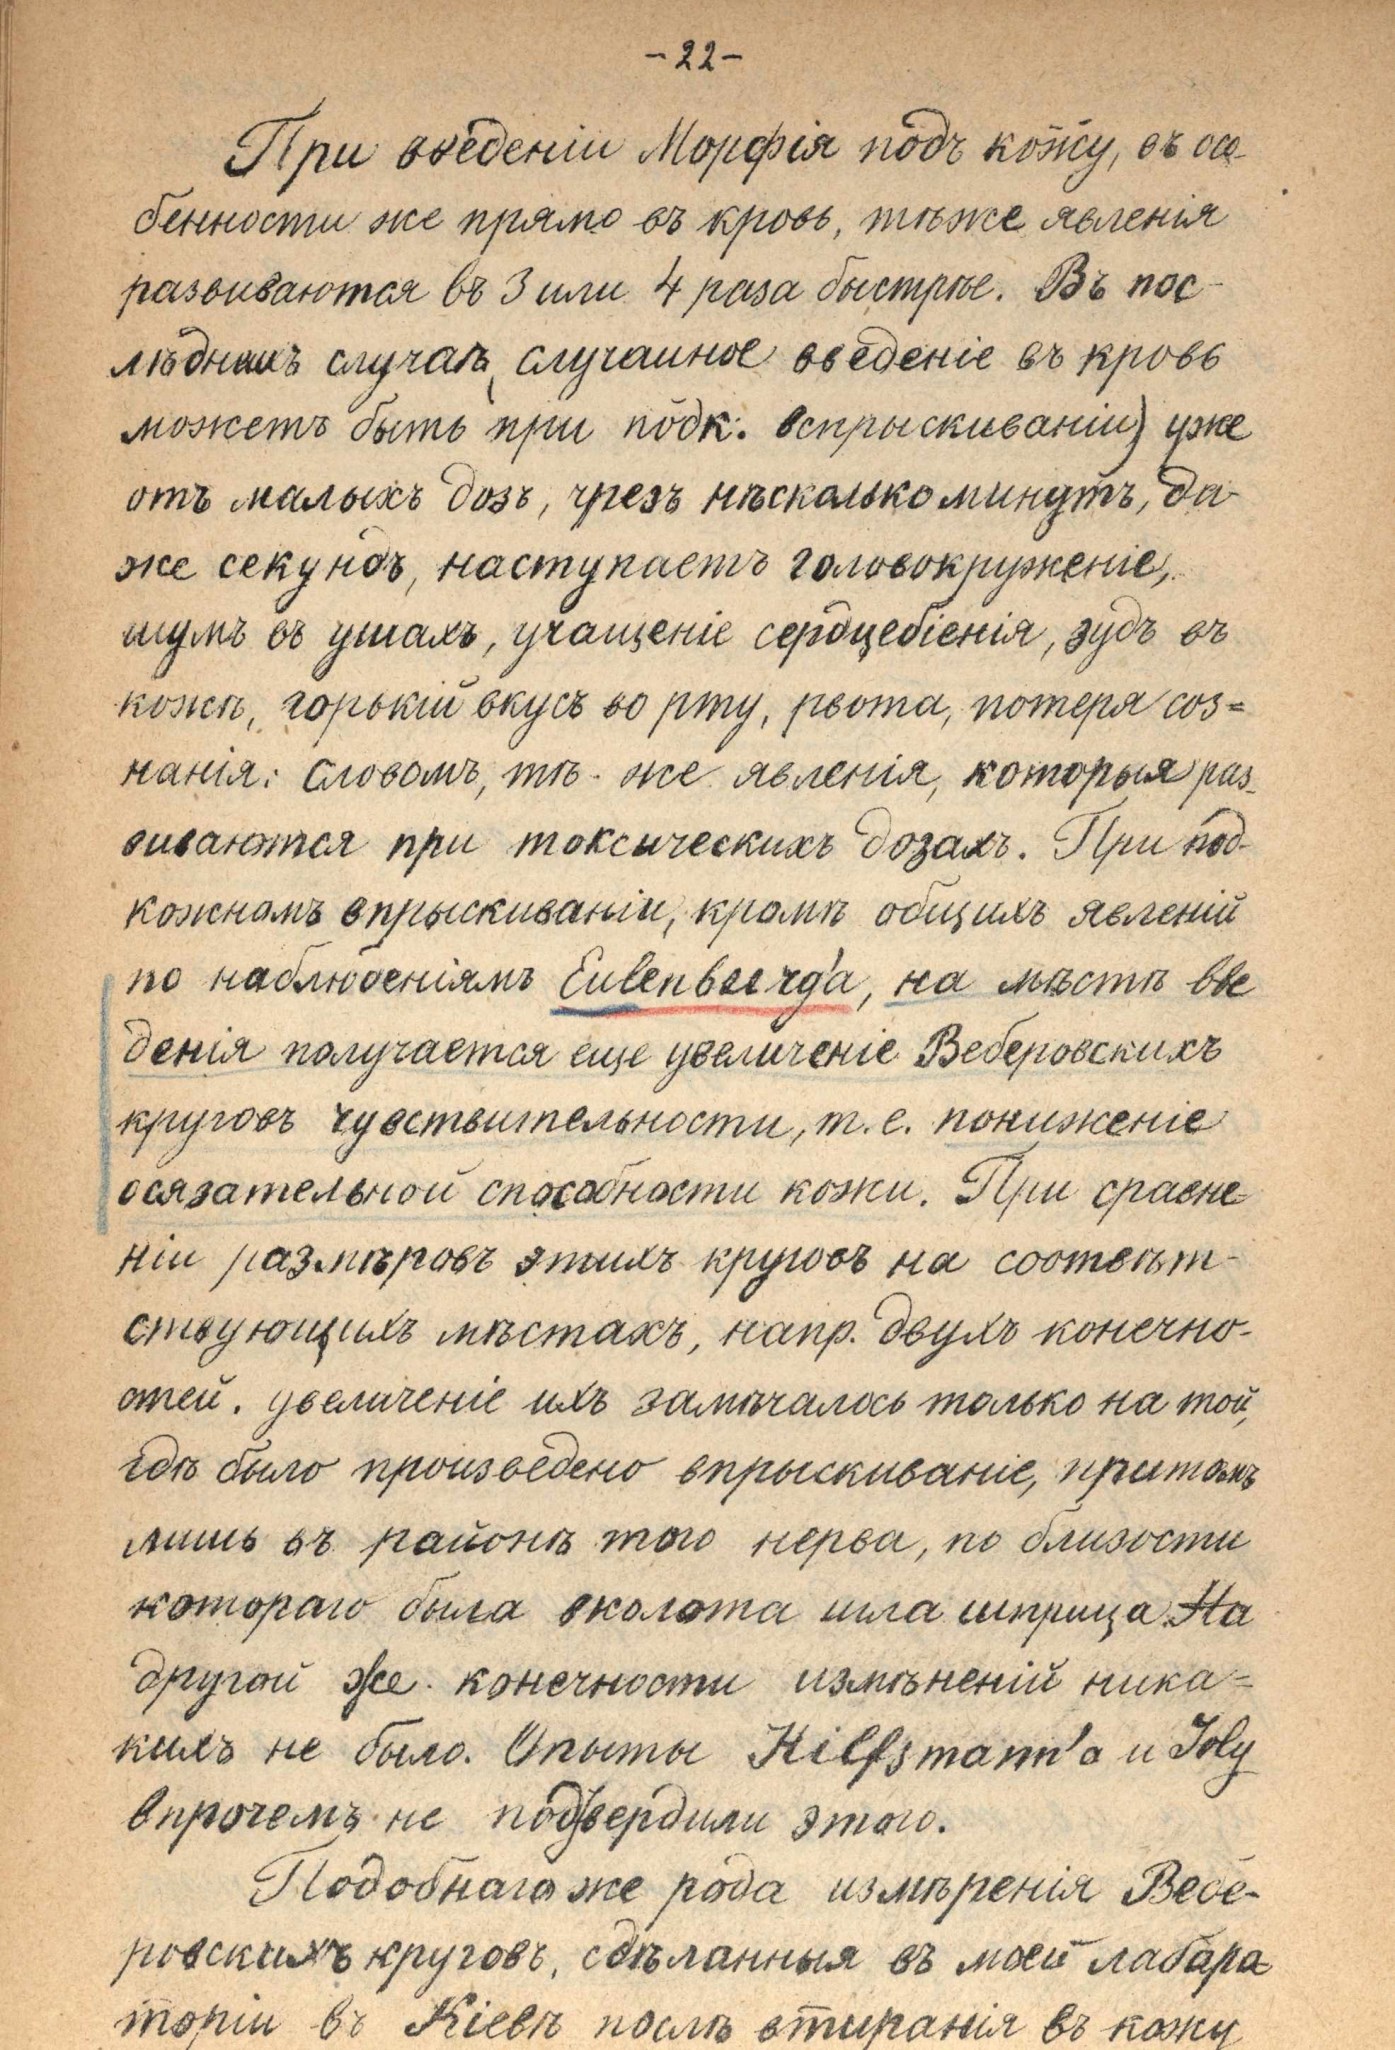 -22-
При введеніи Морфія подъ кожу, въ осо-
бенности же прямо въ кровь, тѣже явленія
развиваются въ 3 или 4 раза быстрѣе. Въ пос-
лѣднихъ случаѣ, случайное введеніе въ кровь
можетъ быть при подк. вспрыскиваніи) уже
отъ малыхъ дозъ, чрезъ нѣсколько минутъ, да-
же секундъ, наступаетъ головокруженіе,
шумъ въ ушахъ, учащеніе сердцебіенія, зудъ въ
кожѣ, горькій вкусъ во рту, рвота, потеря соз=
нанія: словомъ, тѣ-же явленія, которыя раз-
виваются при токсическихъ дозахъ. При под-
кожномъ впрыскиваніи, кромѣ общихъ явленій
по наблюденіямъ Eulenburg'a, на мѣстѣ вве
денія получается еще увеличеніе Веберовскихъ
круговъ чувствительности, т.е. пониженіе
осязательной способности кожи. При сравне-
ніи размѣровъ этихъ круговъ на соотвѣт-
ствующихъ мѣстахъ, напр. двухъ конечно-
стей. увеличеніе ихъ замѣчалось только на той,
гдѣ было произведено впрыскиваніе, притомъ
лишь въ районѣ того нерва, по близости
котораго была вколота игла шприца. На
другой же конечности измѣненій ника=
кихъ не было. Опыты Hilfsmann'a и Joly
впрочемъ не подтвердили этого.
Подобнаго же рода измѣренія Вебе-
ровскихъ круговъ, сдѣланныя въ моей лабора-
торіи въ Кіевѣ послѣ втиранія въ кожу